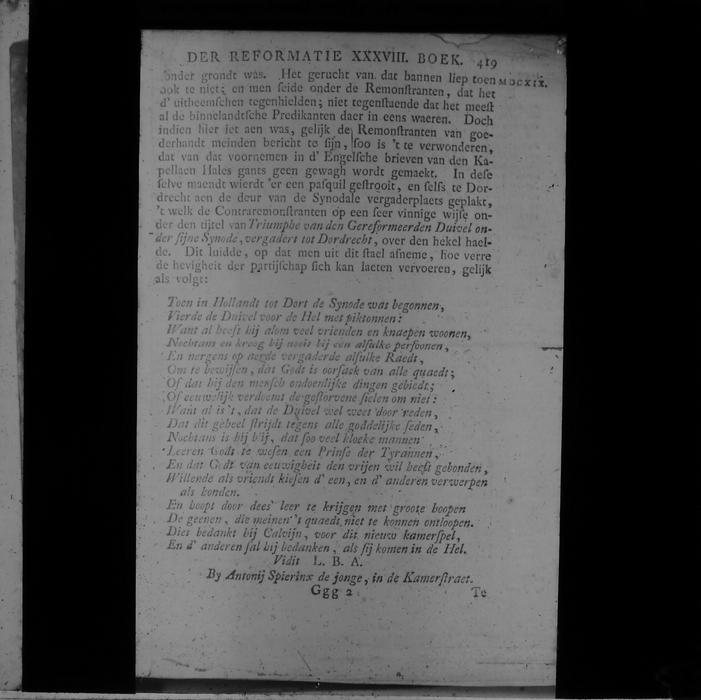 DER REFORMATIE XXXVIII. BOEK. 419
onder grondt was. Het gerucht van dat bannen liep toen MDCXIX.
ook te niet; en men seide onder de Remonstranten, dat het
d' uitheemschen tegenhielden; niet tegenstaende dat het meest
al de binnelandtsche Predikanten daer in eens waeren. Doch
indien hier iet aen was, gelijk de Remonstranten van goe-
derhandt meinden bericht te sijn, soo is 't te verwonderen,
dat van dat voornemen in d' Engelsche brieven van den Ka-
pellaen Hales gants geen gewagh wordt gemaekt. In dese
selve maendt wierdt 'er een pasquil gestrooit, en selfs te Dor-
drecht aen de deur van de Synodale vergaderplaets geplakt,
't welk de Contraremonstranten op een seer vinnige wijse on-
der den tijtel van Triumphe van den Gereformeerden Duivel on-
der sijne Synode, vergadert tot Dordrecht, over den hekel hael-
de. Dit luidde, op dat men uit dit stael afneme, hoe verre
de hevigheit der partijschap sich kan laeten vervoeren, gelijk
als volgt:
Toen in Hollandt tot Dort de Synode was begonnen,
Vierde de Duivel voor de Hel met piktonnen:
Want al heeft hij alom veel vrienden en knaepen woonen,
Nochtans en kreeg hij nooit bij een alsulke persoonen,
En nergens op aerde vergaderde alsulke Raedt,
Om te bewijsen, dat Godt is oorsack van alle quaedt;
Of dat hij den mensch ondoenlijke dingen gebiedt;
Of eeuwelijk verdoemt de gestorvene sielen om niet:
Want al is 't, dat de Duivel wel weet door reden,
Dat dit geheel strijdt tegens alle goddelijke seden,
Nochtans is hij blij, dat soo veel kloeke mannen
Leeren Godt te wesen een Prinse der Tyrannen,
En dat Godt van eeuwigheit den vrijen wil heeft gebonden,
Willende als vriendt kiesen d' een, en d' anderen verwerpen
als honden.
En hoopt door dees' leer te krijgen met groote hoopen
De geenen, die meinen 't quaedt niet te konnen ontloopen.
Dies bedankt hij Calvijn, voor dit nieuw kamerspel,
En d' anderen sal hij bedanken, als sij komen in de Hel.
Vidit L. B. A.
By Antonij Spierinx de jonge, in de Kamerstraet.
Ggg 2 Te